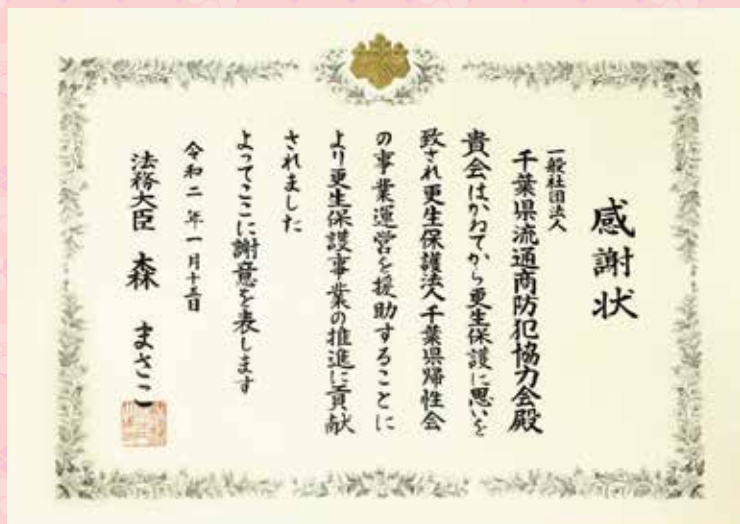 感謝状
一般社団法人
千葉県流通商防犯協力会殿
貴会はかねてから更生保護に思いを
致され更生保護法人千葉県帰性会
の事業運営を援助することに
より更生保護事業の推進に貢献
されました
よってここに謝意を表します
令和二年一月十五日
法務大臣 森 まさこ